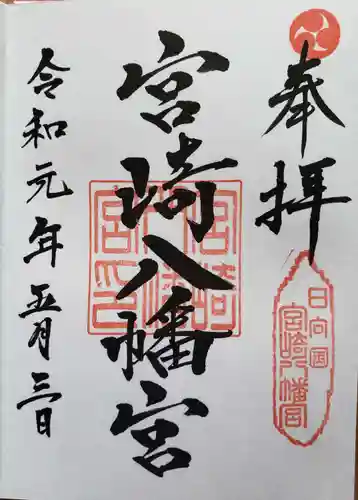 奉拝
日向国
宮崎八幡宮
宮崎八幡宮
宮崎八幡宮印
令和元年五月三日